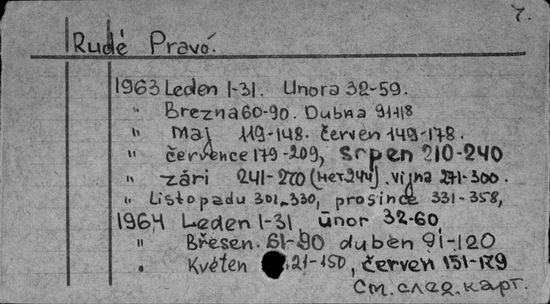 7.
Rudé Pravó.
1963 Leden 1-31. Unora 32-59.
" Brezna 60-90. Dubna 91-118
" Maj 119-148. červen 149-178.
" července 179-209, Srpen 210-240
" zári 241-270 (нет 244). vijna 271-300.
" Listopadu 301-330, prosince 331-358,
1964 Leden 1-31, únor 32-60,
" Břesen. 61-90 duben 91-120
" Květen 121-150, červen 151-179
См. след. карт.